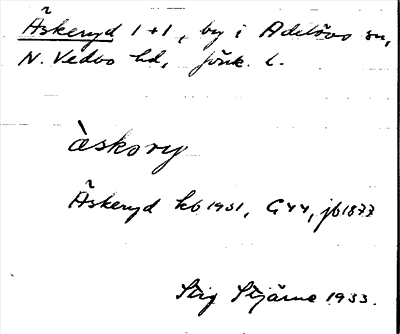 Äskeryd 1+1, by i Adelövs sn,
N. Vedbo hd, Jönk. l.
àskory
Äskeryd kb 1931, G44, jb 1877
Stig Stjärne 1933.